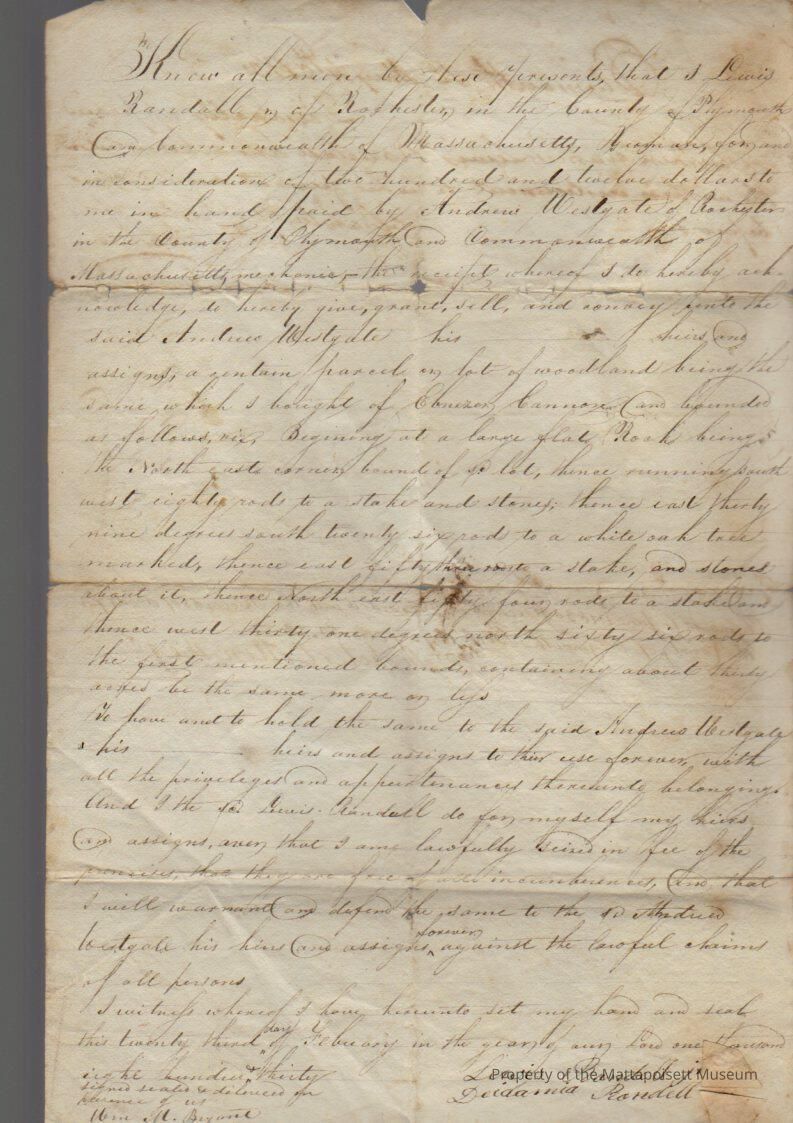 Know all men by these presents, that I Lewis
Randall of Rochester, in the County of Plymouth
and Commonwealth of Massachusetts, Yeoman, for, and
in consideration of two hundred and twelve dollars to
me in hand paid by Andrew Westgate of Rochester
in the County of Plymouth and Commonwealth of
Massachusetts, mechanic, the receipt whereof I do hereby ack-
nowledge, do hereby give, grant, sell, and convey unto the
said Andrew Westgate his heirs and
assigns, a certain parcel or lot of woodland being the
same which I bought of Ebenezer and bounded
as follows, viz, Begining at a large flat Rock being
the North east corner bound of sd lot, thence running south
west eighty rods to a stake and stones; thence east thirty
nine degrees south twenty six rods to a white oak tree
marked, thence east fifty to a stake, and stones
about it, thence North east four rods, to a stake and
thence west thirty one degrees north sixty six rods to
the first mentioned bounds, containing about thirty
acres be the same more or less
To have and to hold the same to the said Andrew Westgate
& his heirs and assigns to their use forever, with
all the privileges and appurtenances thereunto belonging.
And I the sd Lewis Randall do for myself my heirs
and assigns, aver that I am lawfully Seized in fee of the
premises, that they are free of all incumbrences, and that
I will warrant and defend the same to the sd Andrew
Westgate his heirs and assigns forever, against the lawful claims
of all persons
I witness whereof I have hereunto set my hand and seal
this twenty third day of Febuary in the year of our Lord one thousand
eight hundred & thirty
signed sealed & delivered in
presence of us
Wm M. Bryant
Lewis Randall
Deidamia Randell
Property of the Mattapoisett Museum